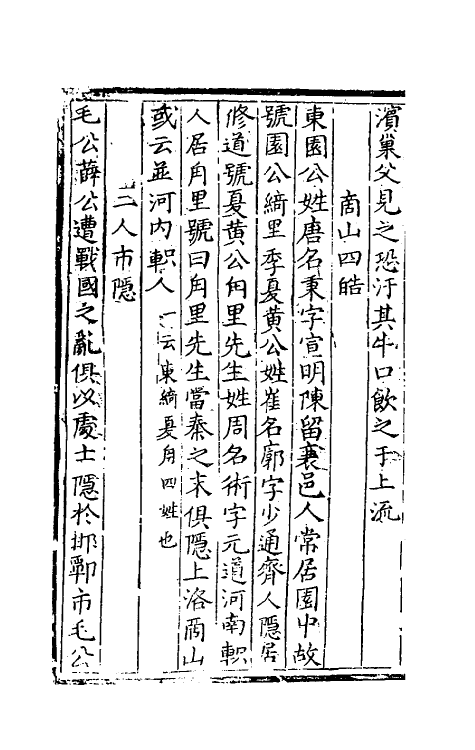 濱巢父見之恐汙其牛口飲之于上流
商山四皓
東園公姓唐名秉字宣明陳留襄邑人常居園中故
號園公綺里季夏黄公姓崔名廓字少通齊人隱居
修道號夏黄公甪里先生姓周名術字元道河南軹
人居甪里號曰甪里先生當秦之末俱隱上洛商山
或云並河内軹人一云東綺夏甪四姓也
二人市隱
毛公薛公遭戰國之亂俱以處士隱於邯鄲市毛公